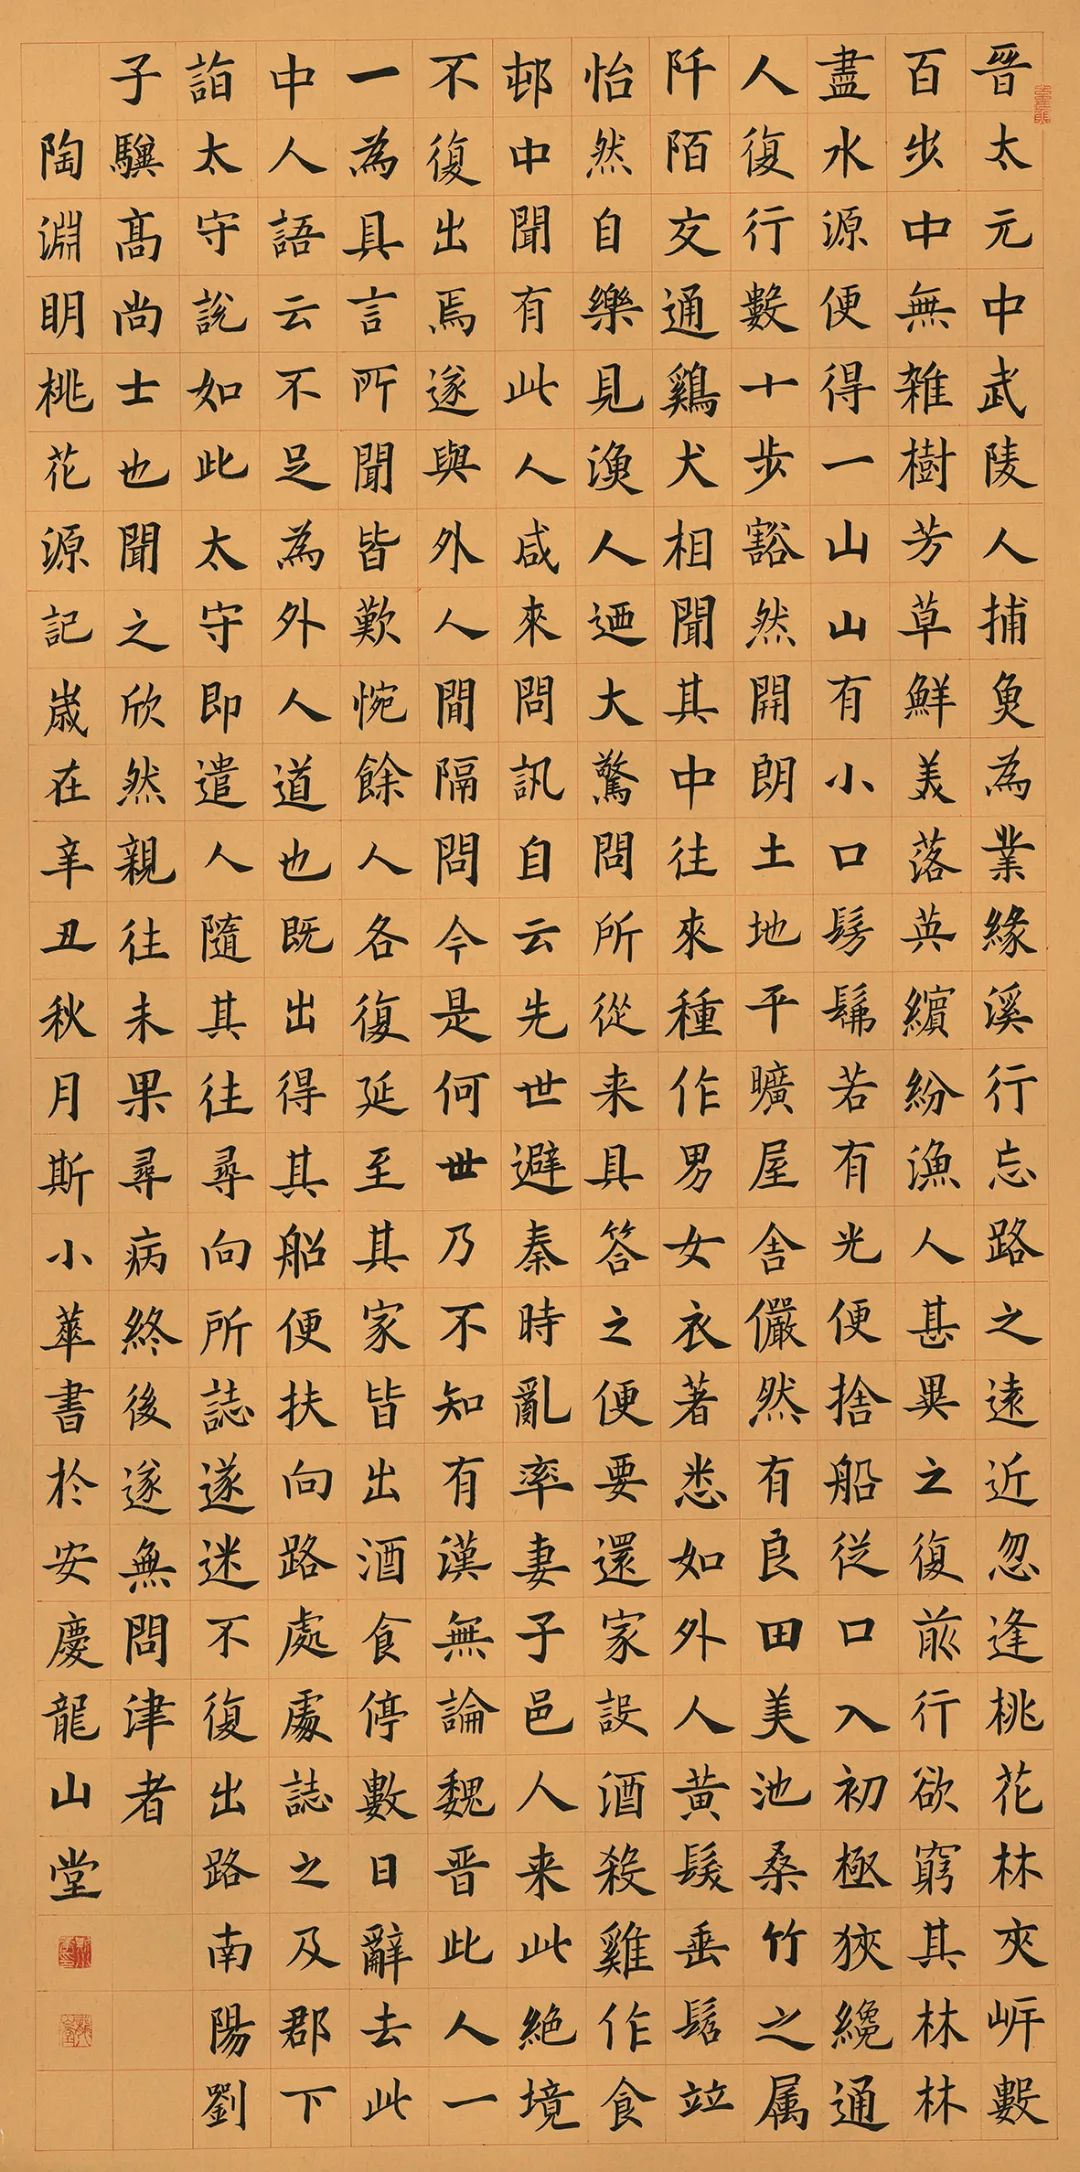 晉太元中武陵人捕魚為業緣溪行忘路之遠近忽逢桃花林夾岍數
百步中無雜樹芳草鮮美落英繽紛漁人甚異之復前行欲窮其林林
盡水源便得一山山有小口髣髴若有光便捨船從口入初極狹纔通
人復行數十步豁然開朗土地平曠屋舍儼然有良田美池桑竹之属
阡陌交通鷄犬相聞其中往來種作男女衣著悉如外人黃髮垂髫竝
怡然自樂見漁人迺大驚問所從来具答之便要還家設酒殺雞作食
邨中聞有此人咸來問訊自云先世避秦時亂率妻子邑人来此絶境
不復出焉遂與外人間隔問今是何世乃不知有漢無論魏晋此人一
一為具言所聞皆歎惋餘人各復延至其家皆出酒食停數日辭去此
中人語云不足為外人道也既出得其船便扶向路處處誌之及郡下
詣太守説如此太守即遣人隨其往尋向所誌遂迷不復出路南陽劉
子驥髙尚士也聞之欣然親往未果尋病終後遂無問津者
陶淵明桃花源記嵗在辛丑秋月斯小華書於安慶龍山堂